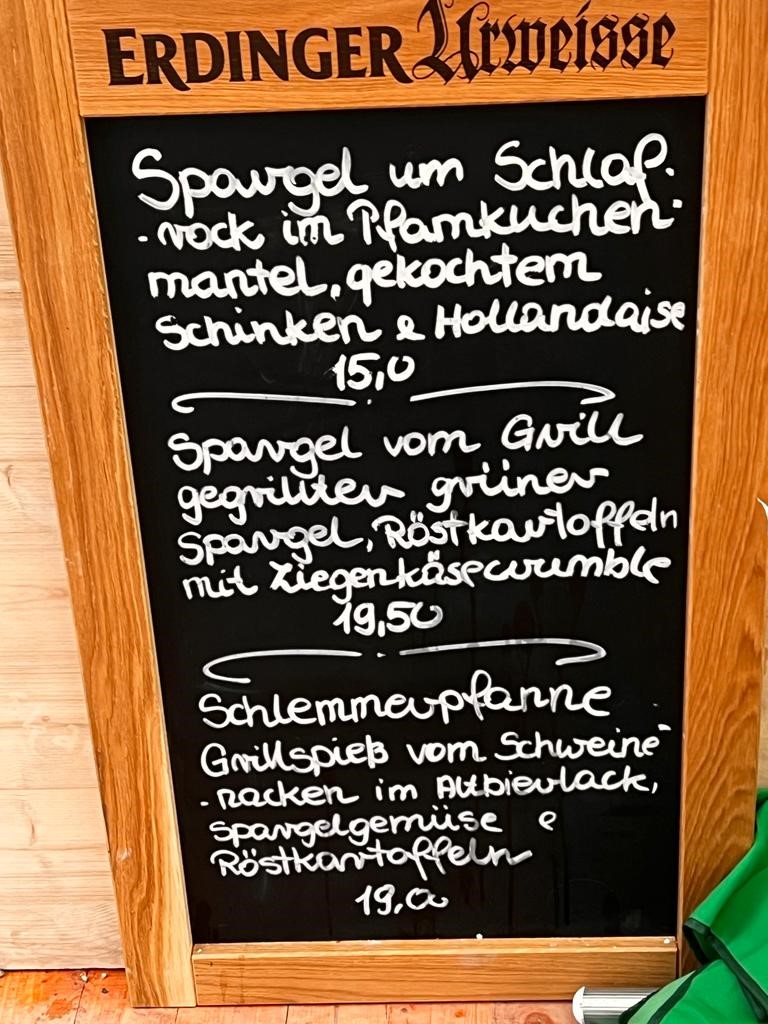 ERDINGER Urweisse
Spargel um Schlaf-
-rock im Pfannkuchen-
mantel, gekochtem
Schinken & Hollandaise
15,0
Spargel vom Grill
gegrillter grüner
Spargel, Röstkartoffeln
mit Ziegenkäsecrumble
19,50
Schlemmerpfanne
Grillspieß vom Schweine-
-nacken im Altbierlack,
Spargelgemüse &
Röstkartoffeln
19,00